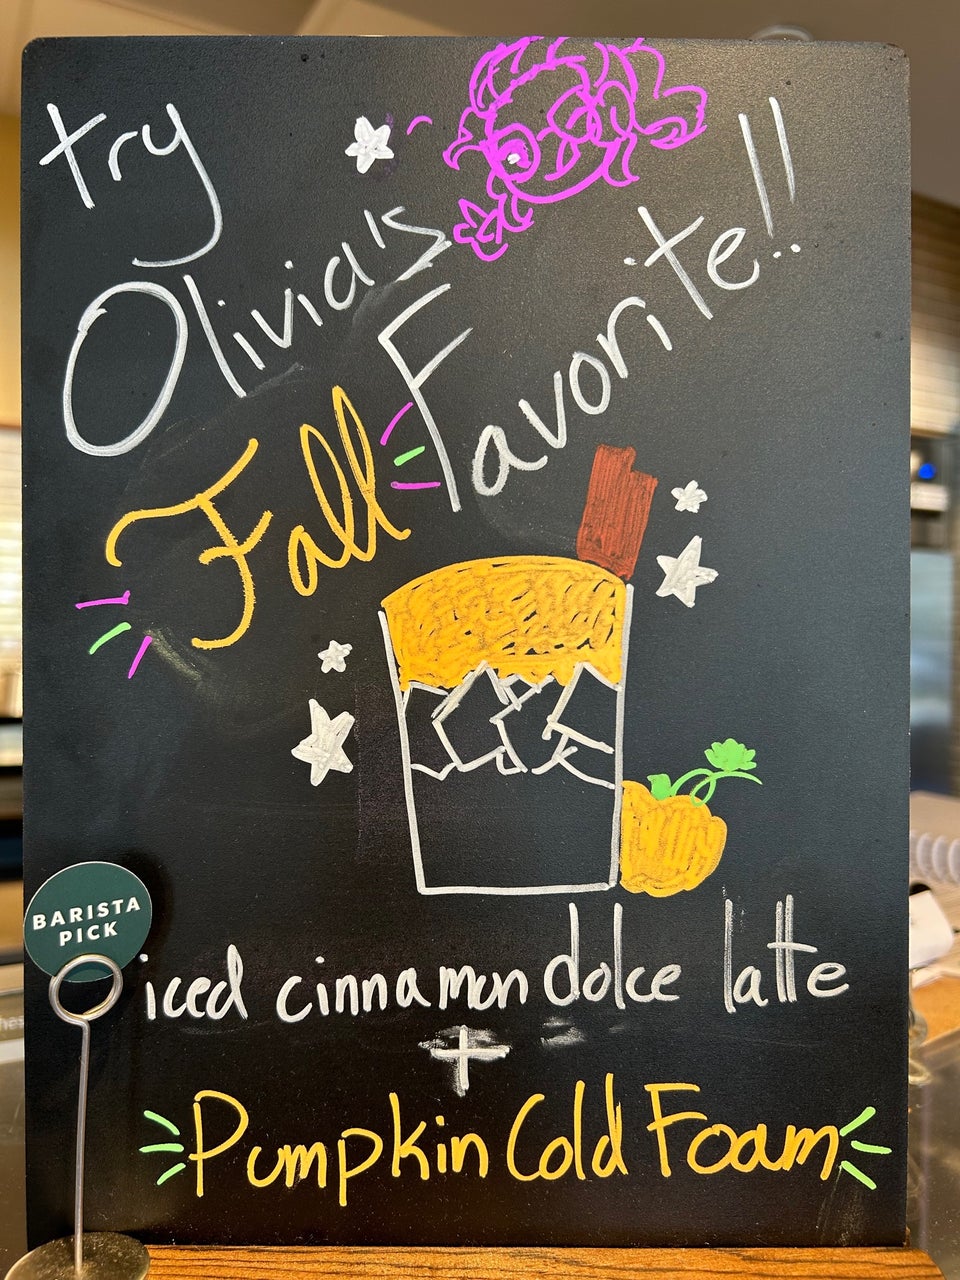 try
Olivia's
Fall Favorite!!
BARISTA
PICK
iced cinnamon dolce latte
+
Pumpkin Cold Foam